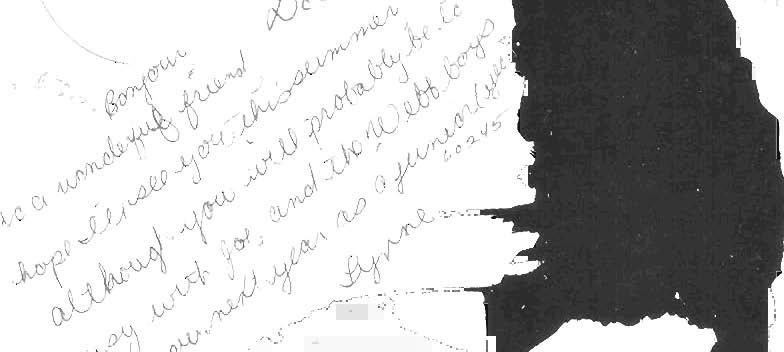 Bonjour
a wonderful friend
hope I'll see you this summer
although you will probably be to
busy with Joe, and the Webb boys
next year as a junior
60245
Lynne